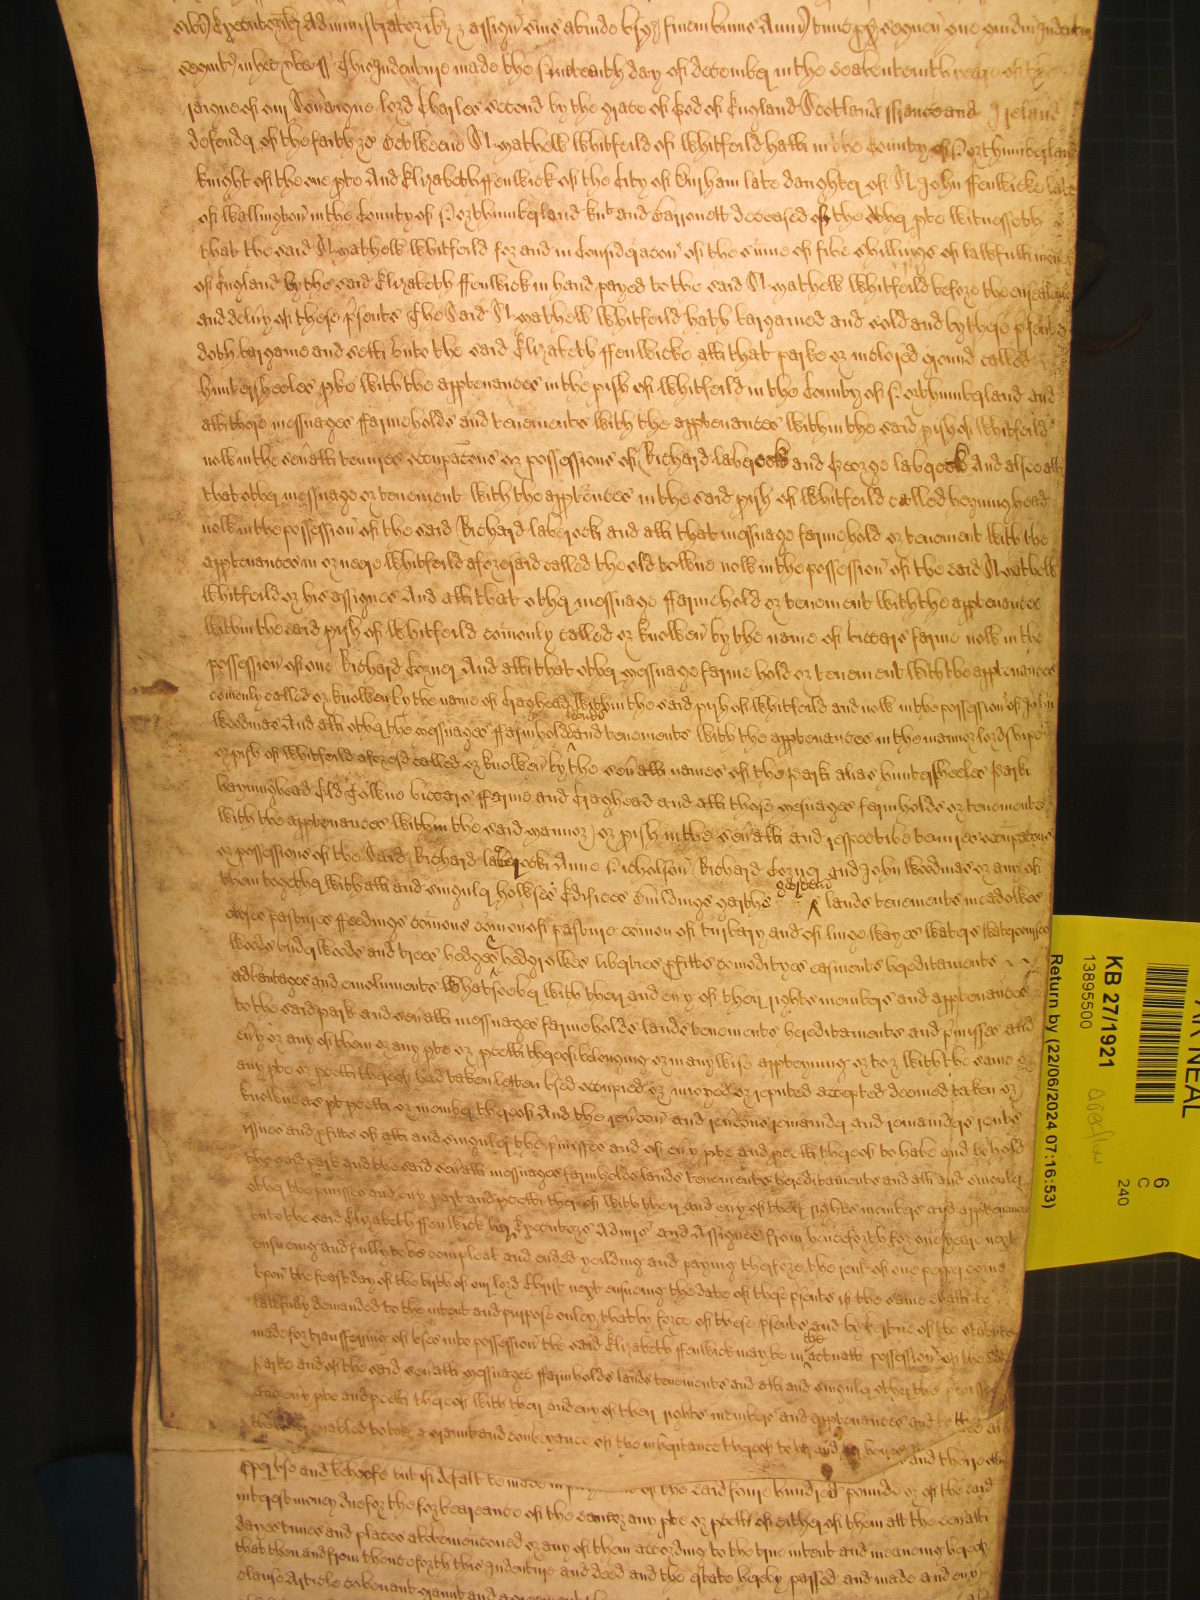 This Indenture made the day of december in the seaventeenth yeare of the
raigne of our Sov'aigne lord Charles second by the grace of God of England Scotland ffrance and Ireland
defender of the faith &c Betweene Mathew Whitfeild of Whitfeild hall in the County of Northumberland
knight of the one pte And Elizabeth ffenwick of the City of Durham late daughter of John ffenwicke late
of Wallington in the County of Northumberland knt and Barronett deceased of the other pte Witnesseth
that the said Mathew Whitfeild for and in Consideracon of the sume of five shillings of lawfull money
of England by the said Elizabeth ffenwick in hand payed to the said Mathew Whitfeild before the ensealing
and deliv'y of these p'sents The Said Mathew Whitfeild hath bargained and sold and by these p'sents
doth bargaine and sell unto the said Elizabeth ffenwicke all that parke or inclosed ground called
huntersheeles pke with the apptenances in the pish of Whitfeild in the County of Northumberland and
all those messuages ffarmeholds and tenements with the apptenances within the said pish of Whitfeild
now in the sev'all tenures occupacons or possessions of Richard laverock and George laverock And also all
that other messuage or tenement with the apptences in the said pish of Whitfeild called head
now in the possession of the said Richard laverock and all that messuage farmehold or tenement with the
apptenances in or neere Whitfeild aforesaid called the old towne now in the possession of the said Mathew
Whitfeild or his assignes And all that other messuage ffarmehold or tenement with the apptenances
within the said pish of Whitfeild comonly called or knowen by the name of farme now in the
possession of one Richard And all that other messuage farme hold or tenement with the apptenances
comonly called or knowen by the name of Craghead within the said pish of Whitfeild and now in the possession of John
Woodmas And all other the messuages ffarmeholds lands and tenements with the apptenances in the mannor lordshipp
or pish of Whitfeild aforesd called or knowen by the sev'all names of the Park alias huntersheeles Park
head Old Towne ffarme and Craghead and all those messuages farmholds or tenements
with the apptenances within the said mannor or pish in the sev'all and respective tenures occupacons
or possessions of the Said Richard laverock Anne Nicholson Richard and John Woodmas or any of
them together with all and singuler howses Edifices Buildings garthes gardens lands tenements meadowes
pastures ffeedings comons comon of pasture comon of turbary and of linge wayes waters watercourses
woods underwoods and trees hedges hedgrowes liberties p'fitts comodityes easments hereditaments
advantages and emoluments whatsoever with their and ev'y of their rights members and apptenances
to the said park and sev'all messuages farmeholds lands tenements hereditaments and p'misses and
ev'y or any of them or any pte or pcell thereof belonging or in any wise apptayning or to or with the same or
any pte or pcell thereof had taken letten used occupied or injoyed or reputed accepted deemed taken or
knowne as pt pcell or member thereof And the rev'con and rev'cons remainder and remainders rents
issues and p'fitts of all and singuler the p'misses and of ev'y pte and pcell thereof to have and to hold
the said park and the said sev'all messuages farmholds lands tenements hereditaments and all and singuler
other the p'misses and ev'y part and pcell thereof with their and ev'y of their rights members and apptenances
unto the said Elizabeth ffenwick her Executors Admrs and Assignes from henceforth for one yeare next
ensueing and fully to be compleat and ended yeilding and paying therefore the rent of one pepper corne
upon the feast day of the birth of our lord Christ next ensueing the date of these p'sents if the same
lawfully demanded to the intent and purpose onley that by force of these p'sents and by vertue of the statute
made for transferring of uses into possession the said Elizabeth ffenwick may be in the actuall possession of the said
Parke and of the said sev'all messuages ffarmholds lands tenements and all and singuler other the p'misses
and ev'y pte and pcell thereof with their and ev'y of their rights members and apptenances and
enabled to take a graunt and conveyance of the inheritance thereof to and heires and their
p'per use and behoofe but if default be made in of the said foure hundred pounds or of the said
interest money due for the forbearance of the same or any pte or pcell of either of them att the sev'all
dayes times and places abovemenconed or any of them according to the true intent and meaneing hereof
that then and from thenceforth this Indenture and deed and the estate hereby passed and made and ev'y
clause Article covenant graunt and agreement
KB 27/1921
13895500
overflow
6
C
240
Return by (22/06/2024 07:16:53)
NEAL